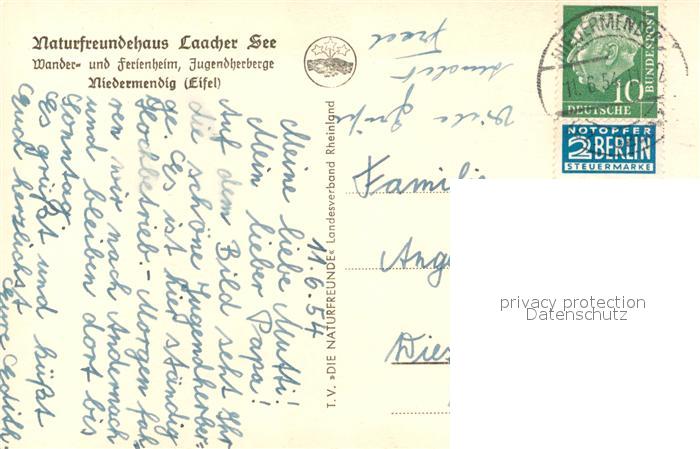 Naturfreundehaus Laacher See
Wander- und Ferienheim, Jugendherberge
Niedermendig (Eifel)
11.6.54
Meine liebe Mutti!
Mein lieber Papa!
Auf dem Bild seht Ihr
die schöne Jugendherber-
ge. Es ist hier ständig
Hochbetrieb. - Morgen fah-
ren wir nach Andernach
und bleiben dort bis
Sonntag.
Es grüßt und küßt
Euch herzlichst
Eure Edith
Viele Grüße
sendet
Fred
T.V. »DIE NATURFREUNDE« Landesverband Rheinland
Familie
Ange
Die
NIEDERMENDIG
11.6.54
10
DEUTSCHE
BUNDESPOST
NOTOPFER
2 BERLIN
STEUERMARKE
privacy protection
Datenschutz